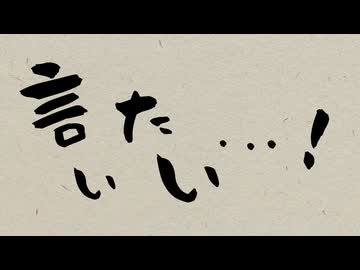 言いたい…!